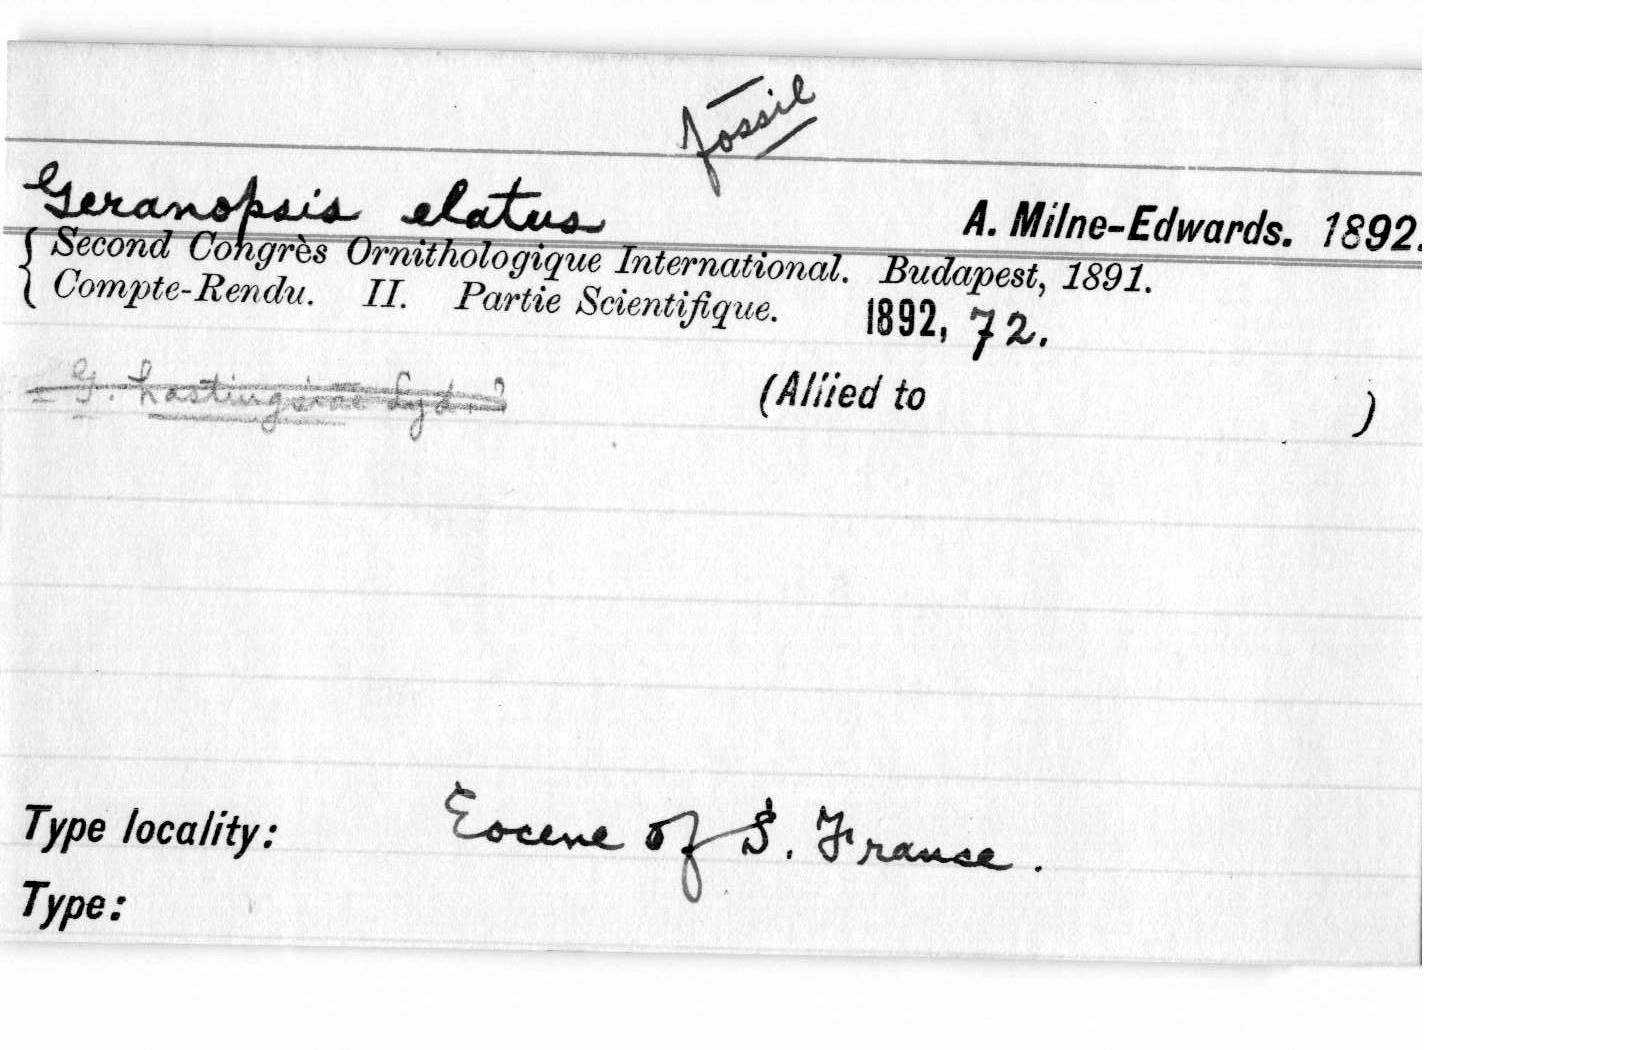 fossil
Geranopsis elatus A. Milne-Edwards. 1892.
Second Congrès Ornithologique International. Budapest, 1891.
Compte-Rendu. II. Partie Scientifique. 1892, 72.
= G. hastingsiae Lyd.? (Allied to )
Type locality: Eocene of S. France.
Type: